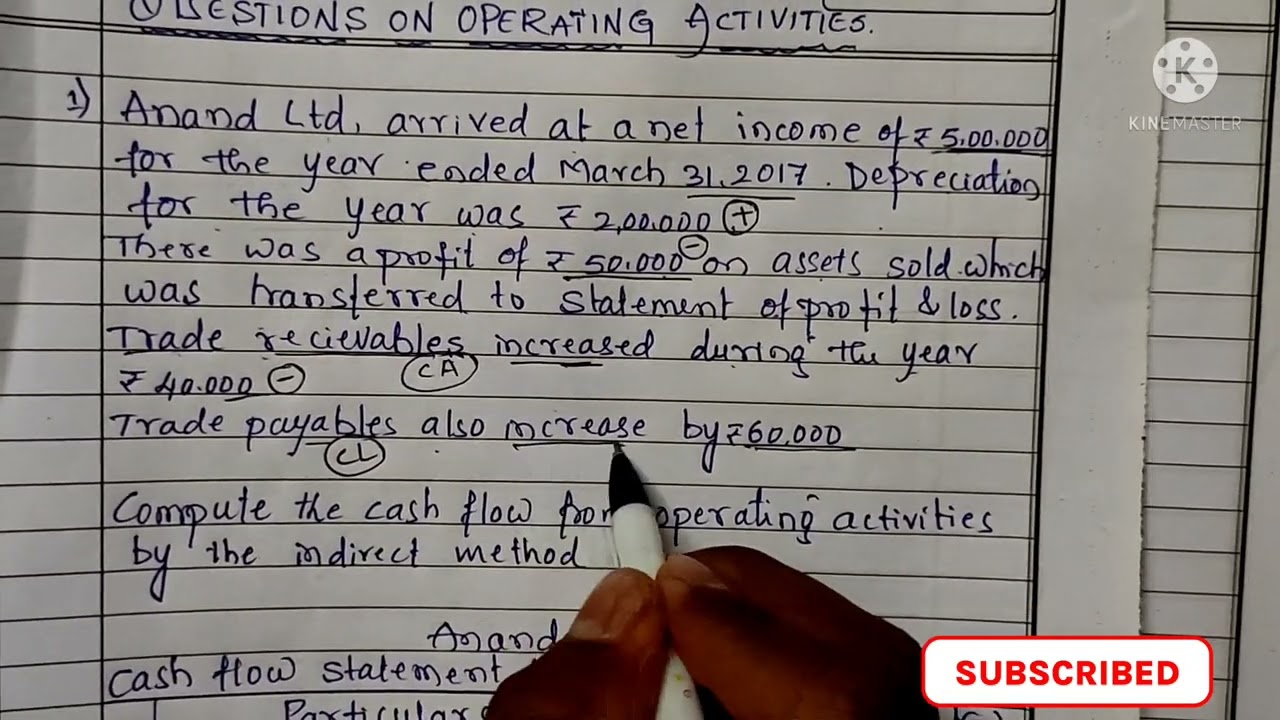 QUESTIONS ON OPERATING ACTIVITIES.
1) Anand Ltd, arrived at a net income of ₹ 5,00,000
for the year ended March 31, 2017. Depreciation
for the year was ₹ 2,00,000 +
There was a profit of ₹ 50,000 - on assets sold which
was transferred to statement of profit & loss.
Trade recievables increased during the year
₹ 40.000 - CA
Trade payables also increase by ₹60,000
CL
Compute the cash flow from operating activities
by the indirect method
Anand
cash flow statement
Particular
K
KINEMASTER
SUBSCRIBED